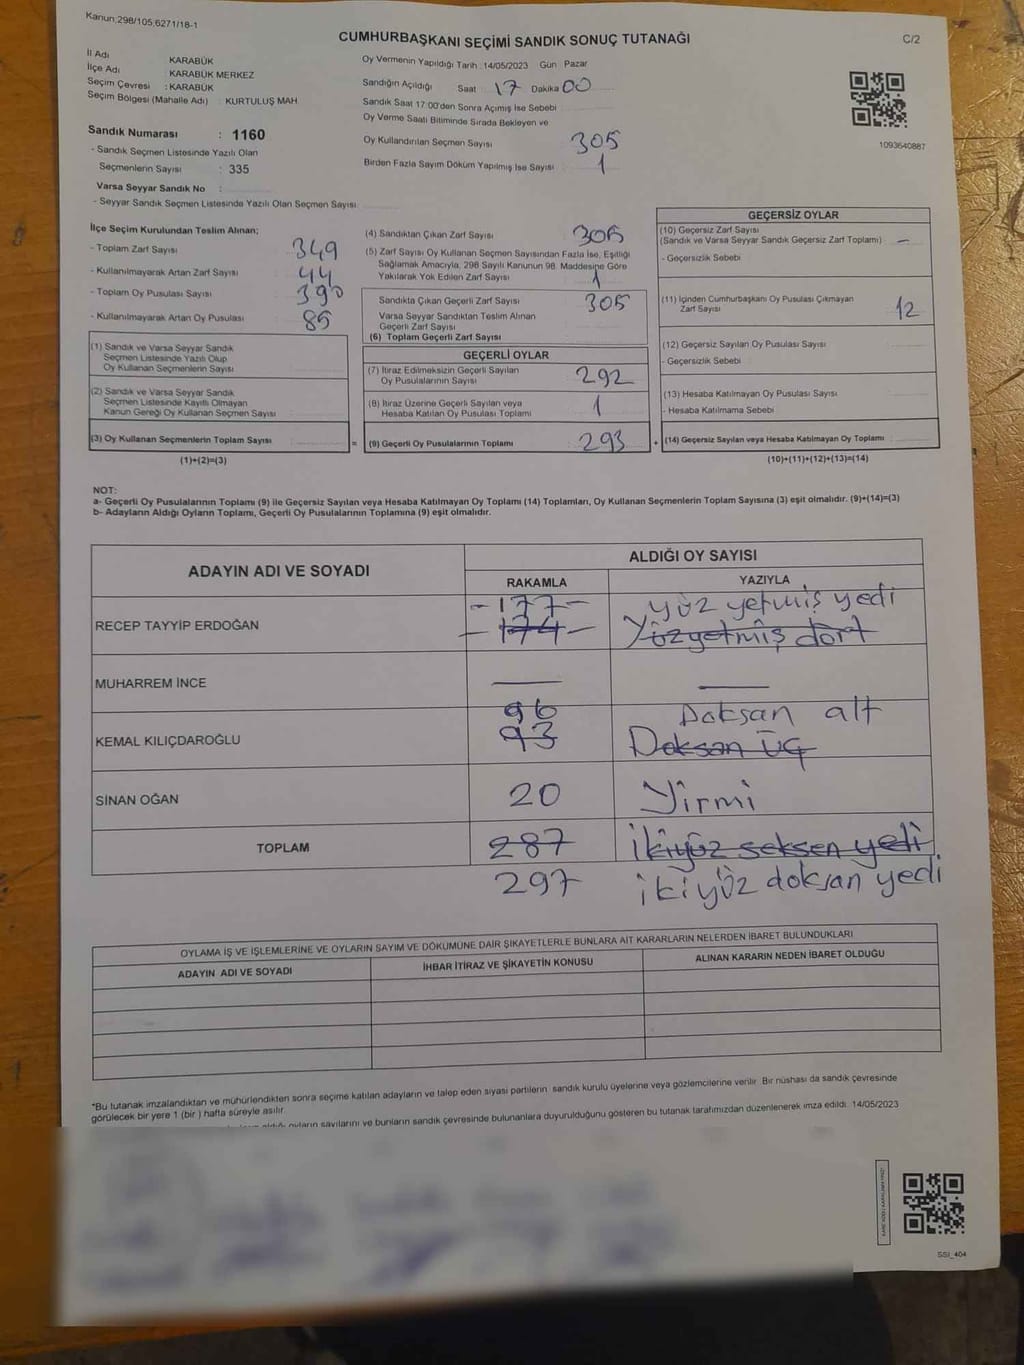 Kanun;298/105,6271/18-1
CUMHURBAŞKANI SEÇİMİ SANDIK SONUÇ TUTANAĞI
C/2
İl Adı KARABÜK
İlçe Adı KARABÜK MERKEZ
Seçim Çevresi : KARABÜK
Seçim Bölgesi (Mahalle Adı) : KURTULUŞ MAH
Sandık Numarası : 1160
- Sandık Seçmen Listesinde Yazılı Olan
Seçmenlerin Sayısı : 335
Varsa Seyyar Sandık No :
- Seyyar Sandık Seçmen Listesinde Yazılı Olan Seçmen Sayısı
Oy Vermenin Yapıldığı Tarih :14/05/2023 Gün Pazar
Sandığın Açıldığı Saat 17 Dakika 00
Sandık Saat 17:00'den Sonra Açımış İse Sebebi
Oy Verme Saati Bitiminde Sırada Bekleyen ve
Oy Kullandırılan Seçmen Sayısı 305
Birden Fazla Sayım Döküm Yapılmış İse Sayısı 1
1093640887
İlçe Seçim Kurulundan Teslim Alınan;
- Toplam Zarf Sayısı 349
- Kullanılmayarak Artan Zarf Sayısı 44
- Toplam Oy Pusulası Sayısı 390
- Kullanılmayarak Artan Oy Pusulası 85
(1) Sandık ve Varsa Seyyar Sandık
Seçmen Listesinde Yazılı Olup
Oy Kullanan Seçmenlerin Sayısı
(2) Sandık ve Varsa Seyyar Sandık
Seçmen Listesinde Kayıtlı Olmayan
Kanun Gereği Oy Kullanan Seçmen Sayısı
(3) Oy Kullanan Seçmenlerin Toplam Sayısı
(1)+(2)=(3)
(4) Sandıktan Çıkan Zarf Sayısı 305
(5) Zarf Sayısı Oy Kullanan Seçmen Sayısından Fazla İse, Eşitliği
Sağlamak Amacıyla, 298 Sayılı Kanunun 98. Maddesine Göre
Yakılarak Yok Edilen Zarf Sayısı 1
Sandıkta Çıkan Geçerli Zarf Sayısı 305
Varsa Seyyar Sandıktan Teslim Alınan
Geçerli Zarf Sayısı
(6) Toplam Geçerli Zarf Sayısı
GEÇERLİ OYLAR
(7) İtiraz Edilmeksizin Geçerli Sayılan
Oy Pusulalarının Sayısı 292
(8) İtiraz Üzerine Geçerli Sayılan veya
Hesaba Katılan Oy Pusulası Toplamı 1
= (9) Geçerli Oy Pusulalarının Toplamı 293 +
GEÇERSİZ OYLAR
(10) Geçersiz Zarf Sayısı
(Sandık ve Varsa Seyyar Sandık Geçersiz Zarf Toplamı) -
- Geçersizlik Sebebi
(11) İçinden Cumhurbaşkanı Oy Pusulası Çıkmayan
Zarf Sayısı 12
(12) Geçersiz Sayılan Oy Pusulası Sayısı
- Geçersizlik Sebebi
(13) Hesaba Katılmayan Oy Pusulası Sayısı
- Hesaba Katılmama Sebebi
(14) Geçersiz Sayılan veya Hesaba Katılmayan Oy Toplamı
(10)+(11)+(12)+(13)=(14)
NOT:
a- Geçerli Oy Pusulalarının Toplamı (9) ile Geçersiz Sayılan veya Hesaba Katılmayan Oy Toplamı (14) Toplamları, Oy Kullanan Seçmenlerin Toplam Sayısına (3) eşit olmalıdır. (9)+(14)=(3)
b- Adayların Aldığı Oyların Toplamı, Geçerli Oy Pusulalarının Toplamına (9) eşit olmalıdır.
ADAYIN ADI VE SOYADI
ALDIĞI OY SAYISI
RAKAMLA YAZIYLA
-177- yüz yetmiş yedi
RECEP TAYYİP ERDOĞAN -174- Yüzyetmiş dört
MUHARREM İNCE — —
96 Doksan altı
KEMAL KILIÇDAROĞLU 93 Doksan üç
SİNAN OĞAN 20 Yirmi
TOPLAM 287 İkiyüz seksen yedi
297 iki yüz doksan yedi
OYLAMA İŞ VE İŞLEMLERİNE VE OYLARIN SAYIM VE DÖKÜMÜNE DAİR ŞİKAYETLERLE BUNLARA AİT KARARLARIN NELERDEN İBARET BULUNDUKLARI
ADAYIN ADI VE SOYADI İHBAR İTİRAZ VE ŞİKAYETİN KONUSU ALINAN KARARIN NEDEN İBARET OLDUĞU
*Bu tutanak imzalandıktan ve mühürlendikten sonra seçime katılan adayların ve talep eden siyasi partilerin sandık kurulu üyelerine veya gözlemcilerine verilir. Bir nüshası da sandık çevresinde
görülecek bir yere 1 (bir) hafta süreyle asılır.
aldığı oyların sayılarını ve bunların sandık çevresinde bulunanlara duyurulduğunu gösteren bu tutanak tarafımızdan düzenlenerek imza edildi. 14/05/2023
SSI_404